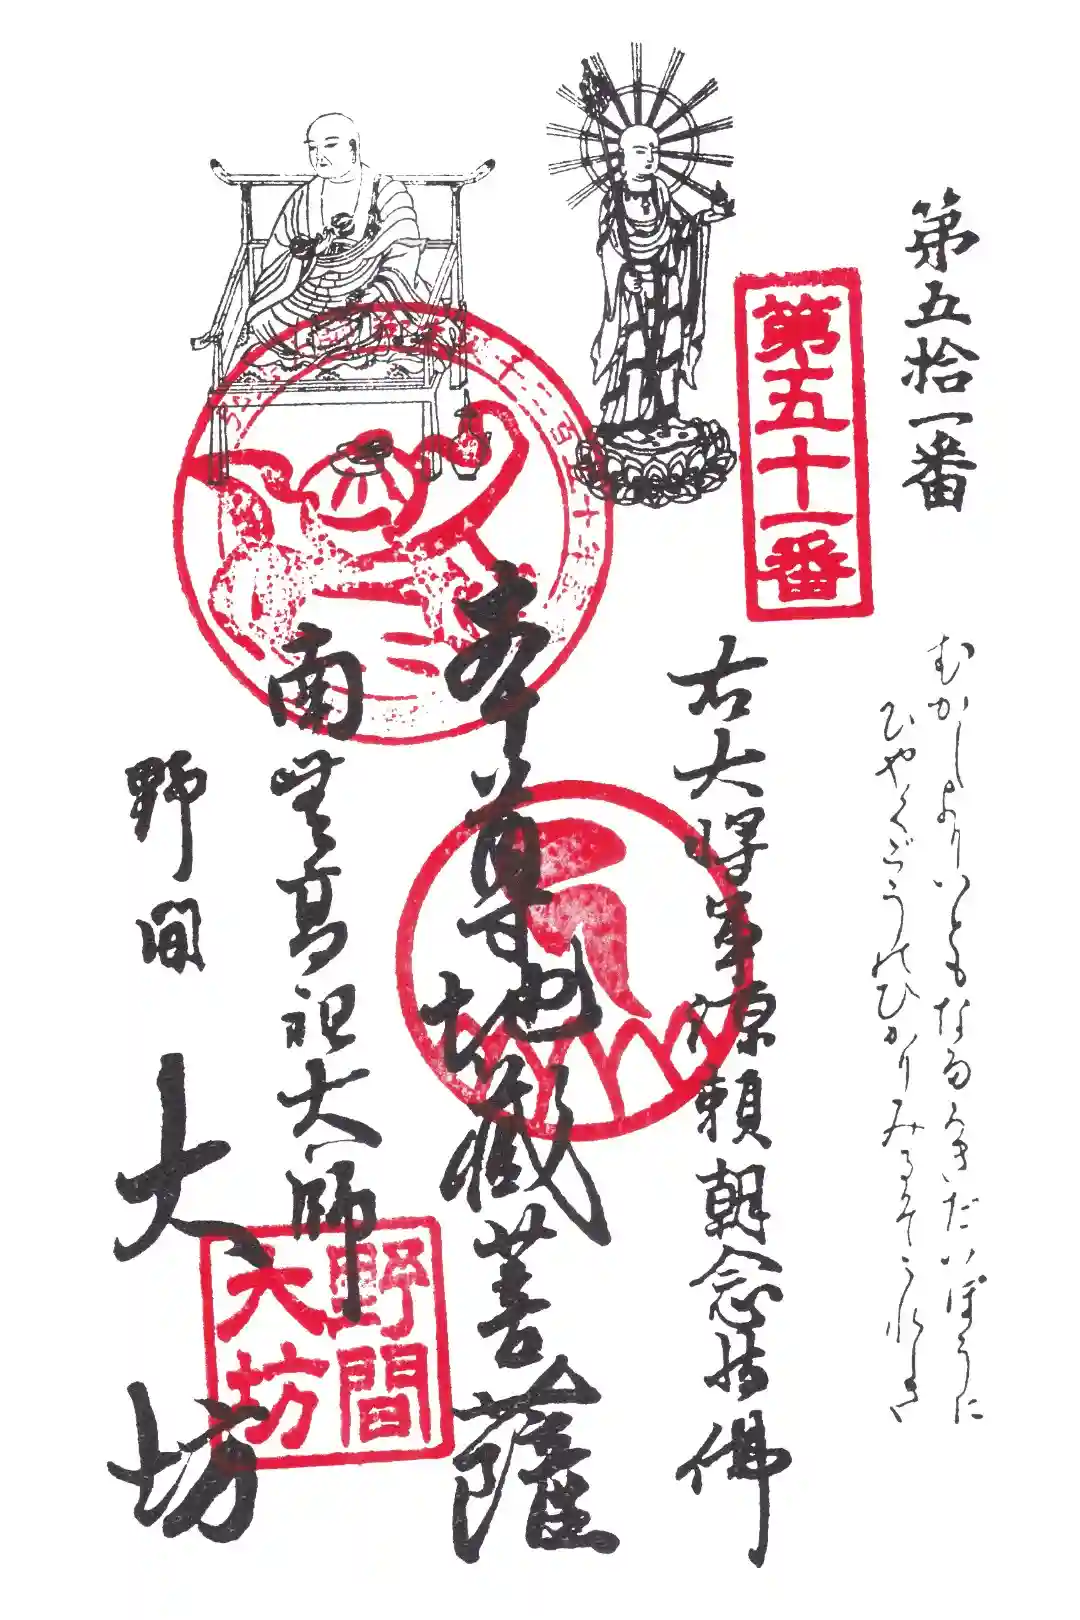 第五拾一番
第五十一番
むかしよりいともなだかきだいぼうに
ひやくごうのひかりみるぞうれしき
右大将軍源頼朝念持佛
本尊地藏菩薩
南無高祖大師
野間 大坊
野間
大坊